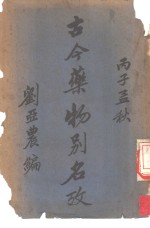 丙子孟秋
古今藥物别名攷
劉亞農編